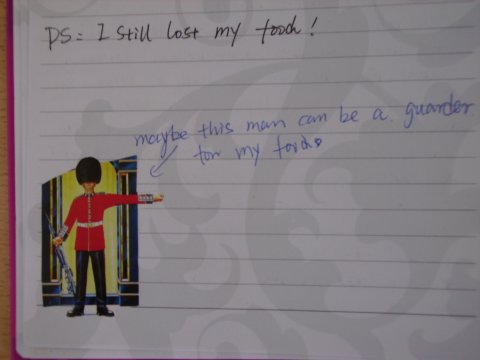 PS: I still lost my food!
maybe this man can be a guarder
for my food.